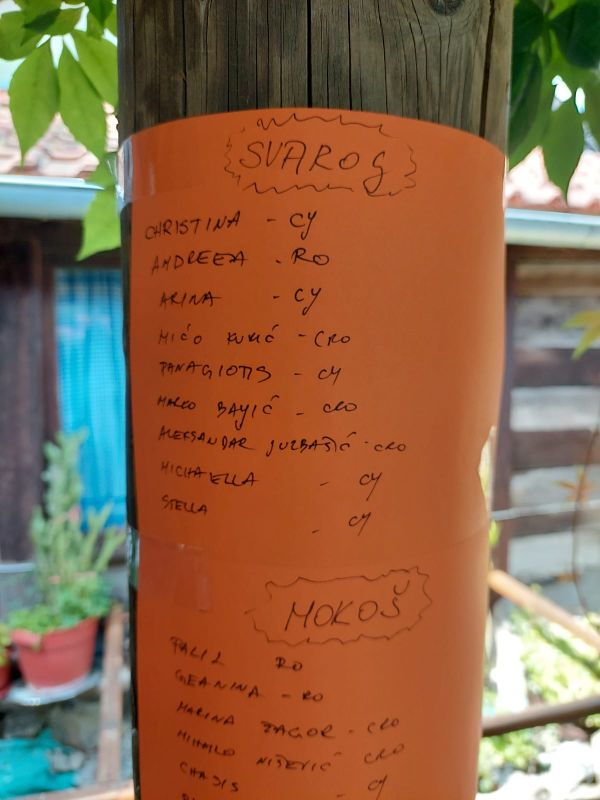 SVAROG
CHRISTINA - CY
ANDREEA - RO
ARINA - CY
MIĆO KUKIĆ - CRO
PANAGIOTIS - CY
MARKO BAYIĆ - CRO
ALEKSANDAR JUZBAŠIĆ - CRO
MICHAELLA - CY
STELLA - CY
MOKOŠ
RO
GEANINA - RO
MARINA ZAGOR - CRO
MIHAILO NIŠEVIĆ CRO
CY